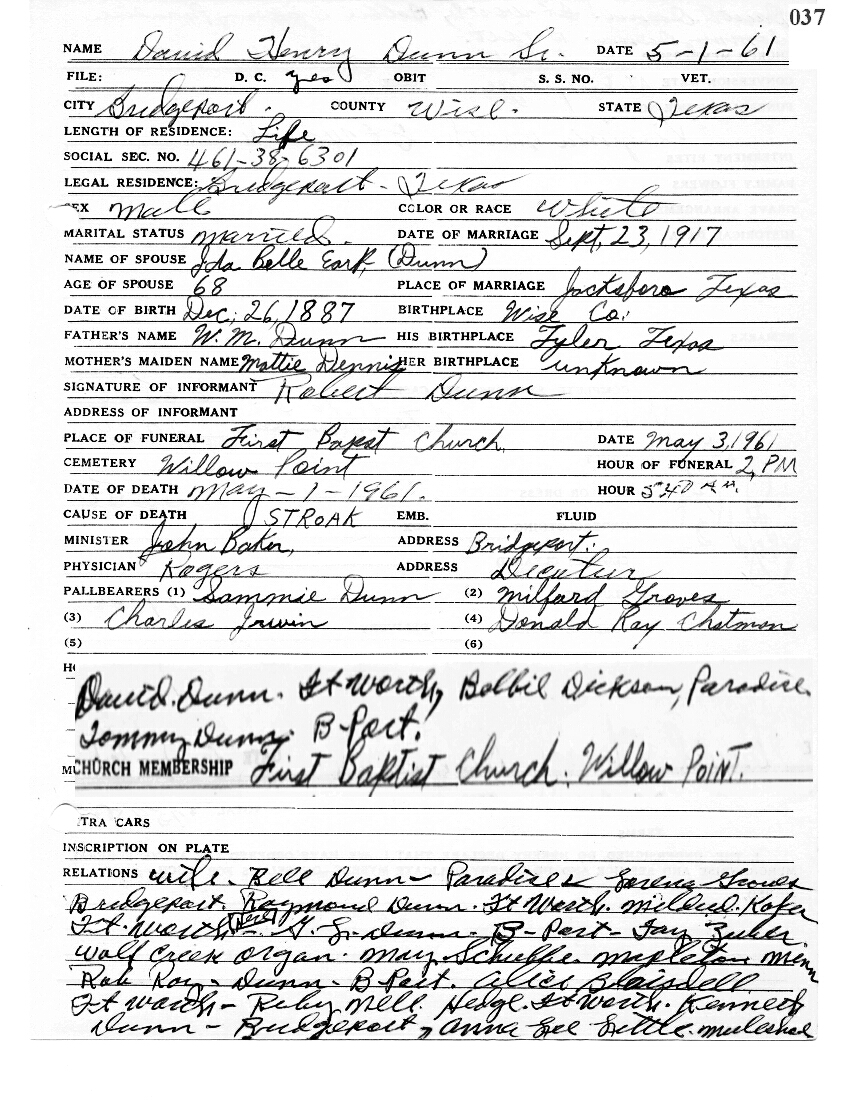 037
NAME David Henry Dunn Sr. DATE 5-1-61
FILE: D. C. yes OBIT S. S. NO. VET.
CITY Bridgeport. COUNTY Wise. STATE Texas
LENGTH OF RESIDENCE: Life
SOCIAL SEC. NO. 461-38-6301
LEGAL RESIDENCE: Bridgeport - Texas
EX Male COLOR OR RACE White
MARITAL STATUS married. DATE OF MARRIAGE Sept, 23, 1917
NAME OF SPOUSE Ida Belle Earp, (Dunn)
AGE OF SPOUSE 68 PLACE OF MARRIAGE Jacksboro Texas
DATE OF BIRTH Dec, 26, 1887 BIRTHPLACE Wise Co.
FATHER'S NAME W. M. Dunn HIS BIRTHPLACE Tyler Texas
MOTHER'S MAIDEN NAME Mattie Dennis HER BIRTHPLACE unknown
SIGNATURE OF INFORMANT Robert Dunn
ADDRESS OF INFORMANT
PLACE OF FUNERAL First Bapst Church DATE May 3, 1961
CEMETERY Willow Point HOUR OF FUNERAL 2, PM
DATE OF DEATH May-1-1961. HOUR 540 AM.
CAUSE OF DEATH STROAK EMB. FLUID
MINISTER John Baker, ADDRESS Bridgeport.
PHYSICIAN Rogers ADDRESS Decatur
PALLBEARERS (1) Sammie Dunn (2) Milford Groves
(3) Charles Irwin (4) Donald Ray Chatman
(5) (6)
David. Dunn. Ft Worth, Dickson, Paradise.
Tommy Dunn. B-Port.
CHURCH MEMBERSHIP First Baptist Church. Willow Point.
TRA CARS
INSCRIPTION ON PLATE
RELATIONS wife. Bell Dunn - Paradise Lorena Groves
Bridgeport. Raymond Dunn. Ft Worth. Mildred.
Ft. Worth - Dunn - B-Port - Fay
Wolf Creek Organ. May. Mapleton Minn
Rob Roy - Dunn - B-Port. Alice Blaisdell
Ft Worth - Ruby Nell. Hedge. Ft Worth. Kenneth
Dunn - Bridgeport, Anna Lee Little. Muleshoe